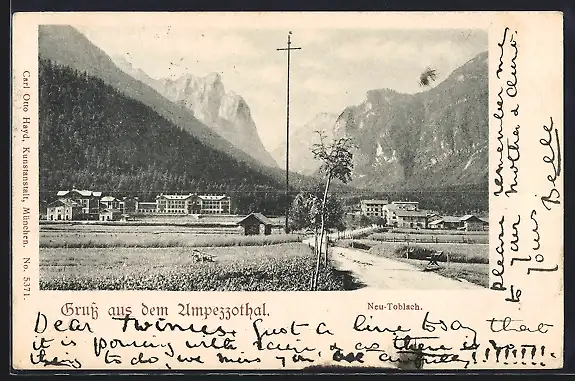 Carl Otto Hayd, Kunstanstalt, München. No. 5371.
Gruß aus dem Ampezzothal.
Neu-Toblach.
Dear Twinies. Just a line to say that
it is pouring with rain & as there is
to do, we miss you
Please remember me
to your mother &
yours Belle